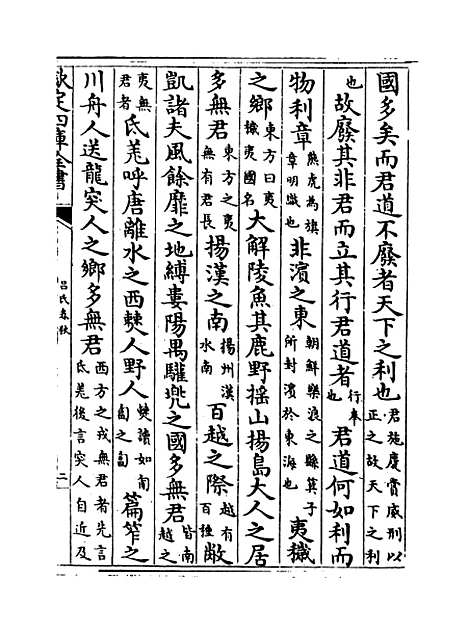 國多矣而君道不廢者天下之利也君施慶賞威刑以正之故天下之利
也故廢其非君而立其行君道者行奉也君道何如利而
物利章熊虎為旗章明識也非濵之東朝鮮樂浪之縣箕子所封濵於東海也夷穢
之鄉東方曰夷穢夷國名大解陵魚其鹿野摇山揚島大人之居
多無君東方之夷無有君長揚漢之南揚州漢水南百越之際越有百種敝
凱諸夫風餘靡之地縛婁陽禺驩兠之國多無君皆南越之
夷無君者氐羗呼唐離水之西僰人野人僰讀如匍匐之匐篇笮之
川舟人送龍突人之鄉多無君西方之戎無君者先言氐羗後言突人自近及
欽定四庫全書
吕氏春秋